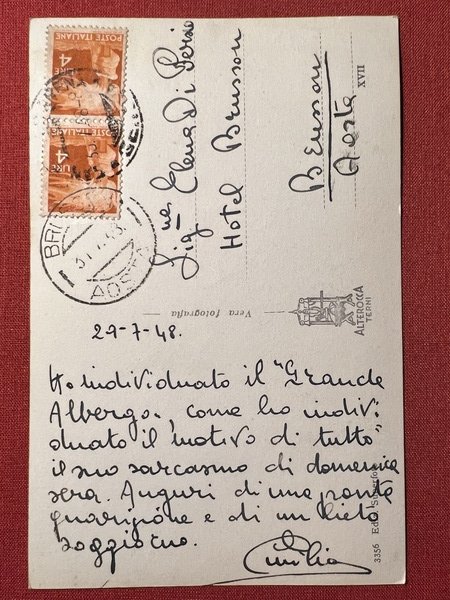 POSTE ITALIANE
4
LIRE
POSTE ITALIANE
4
LIRE
AOSTA
Sig.na Elena Di Persio
Hotel Brusson
Brusson
Aosta
XVII
Vera fotografia
ALTEROCCA
TERNI
29-7-48.
Ho individuato il "Grande
Albergo", come ho indivi-
duato il motivo di tutto
il suo sarcasmo di domenica
sera. Auguri di una pronta
guarigione e di un lieto
soggiorno.
3356